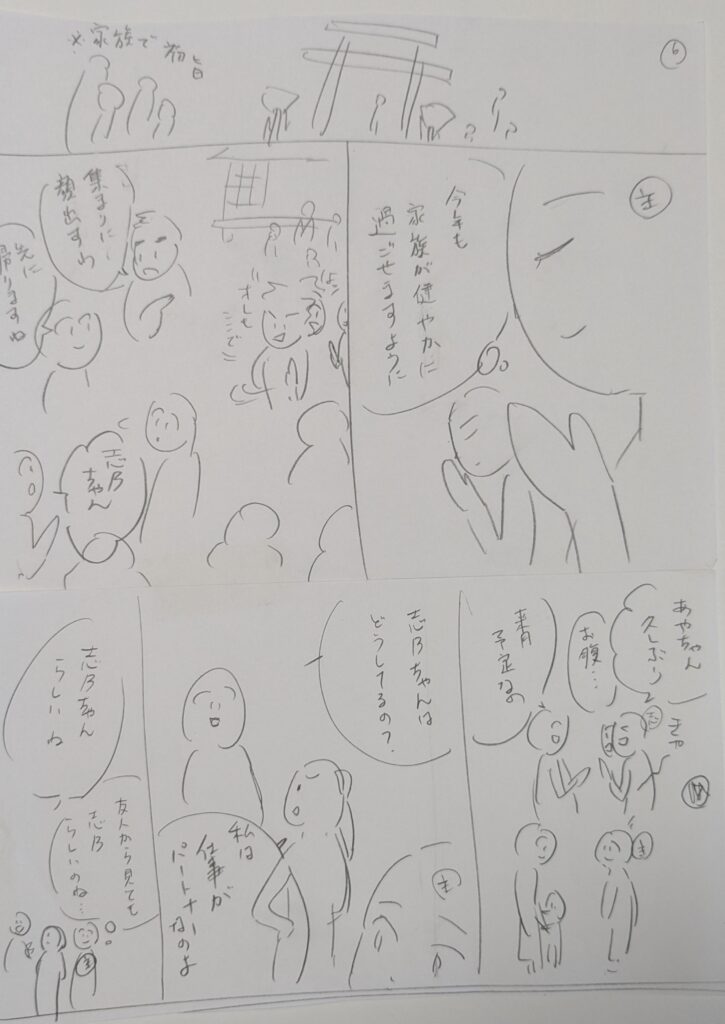 6
※家族で
初旨
㋖
今年も
家族が健やかに
過ごせますように
オレも
ここで
集まりに
顔出すわ
先に
帰りますね
志乃
ちゃん
あやちゃん
久しぶり〜
きゃ
お腹…
来月
予定なの
志乃ちゃんは
どうしてるの?
私は
仕事が
パートナーなのよ
志乃ちゃん
らしいね
友人から見ても
志乃
らしいのね…